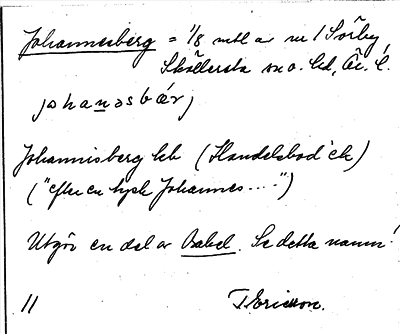 Johannesberg = 1/8 mtl av nr 1 Sörby
Sköllersta sn o. hd, Ör. l.
johanəsbær,
Johannisberg hb (Handelsbod ek)
("efter en tysk Johannes....")
Utgör en del av Babel. Se detta namn!
11 T Ericsson.